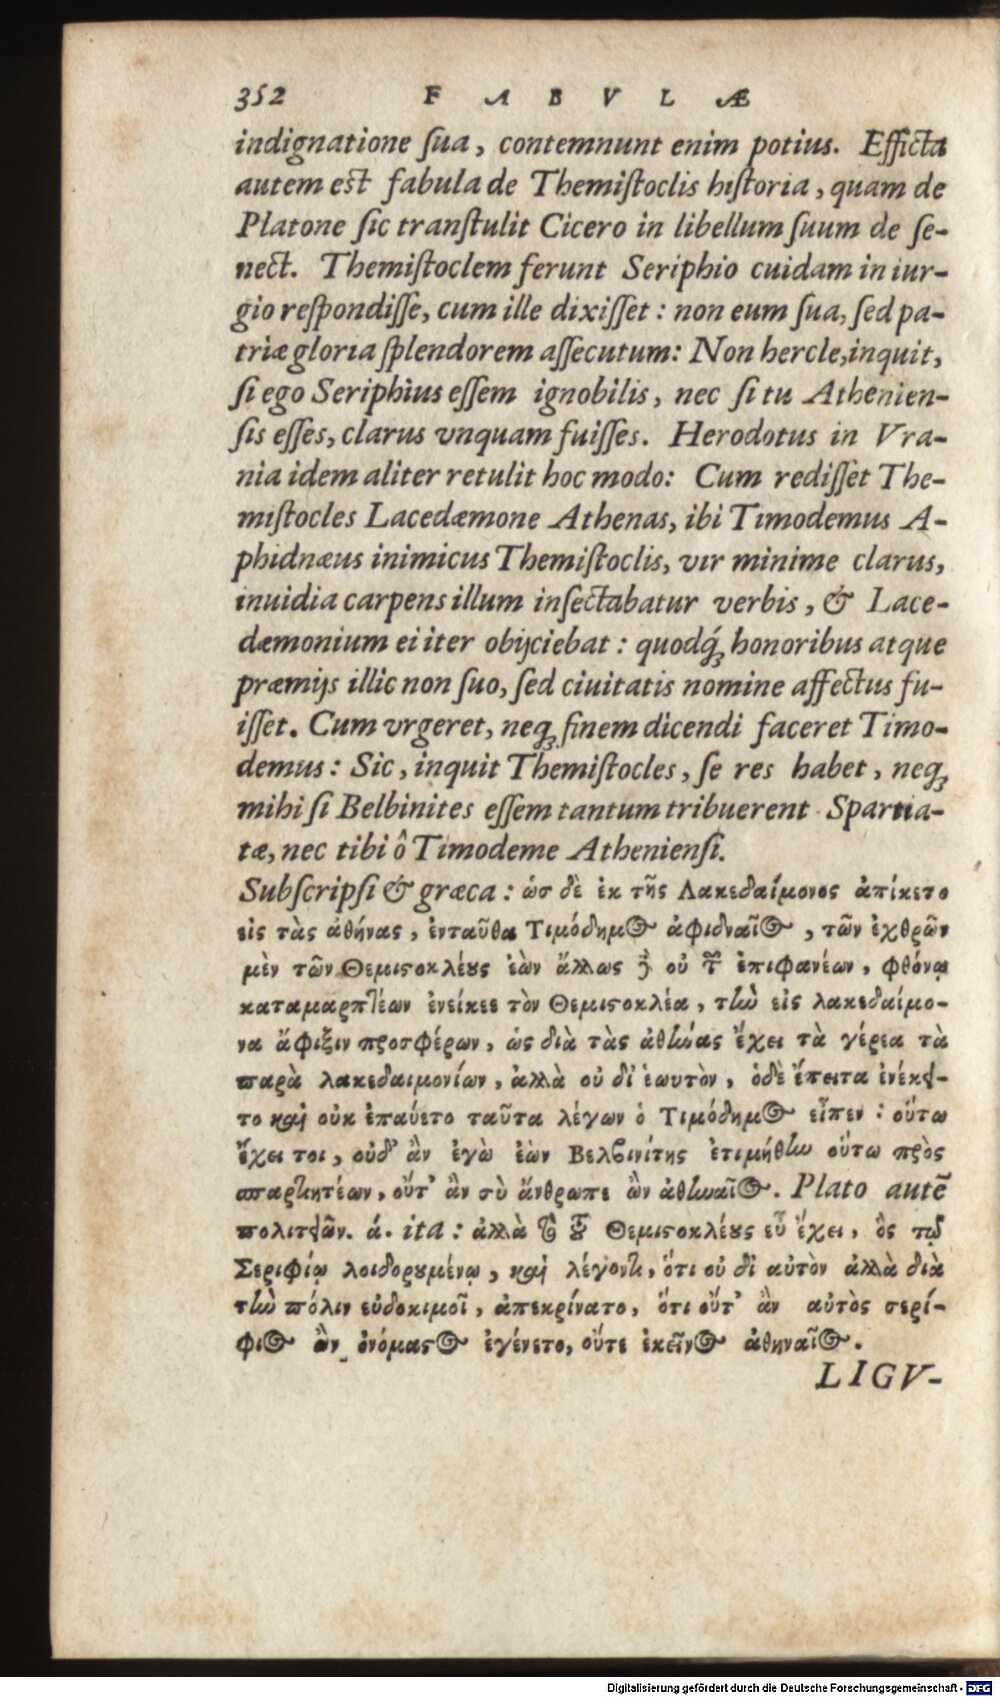 352 FABVLÆ
indignatione ſua, contemnunt enim potius. Efficta
autem est fabula de Themiſtoclis hiſtoria, quam de
Platone ſic tranſtulit Cicero in libellum ſuum de ſe-
nect. Themiſtoclem ferunt Seriphio cuidam in iur-
gio reſpondiſſe, cum ille dixiſſet: non eum ſua, ſed pa-
triæ gloria ſplendorem aſſecutum: Non hercle, inquit,
ſi ego Seriphius eſſem ignobilis, nec ſi tu Athenien-
ſis eſſes, clarus vnquam fuiſſes. Herodotus in Vra-
nia idem aliter retulit hoc modo: Cum rediſſet The-
miſtocles Lacedæmone Athenas, ibi Timodemus A-
phidnæus inimicus Themiſtoclis, vir minime clarus,
inuidia carpens illum inſectabatur verbis, & Lace-
dæmonium ei iter obijciebat: quodq́; honoribus atque
præmijs illic non ſuo, ſed ciuitatis nomine affectus fu-
iſſet. Cum vrgeret, neq; finem dicendi faceret Timo-
demus: Sic, inquit Themiſtocles, ſe res habet, neq;
mihi ſi Belbinites eſſem tantum tribuerent Spartia-
tæ, nec tibi ô Timodeme Athenienſi.
Subſcripſi & græca: ὡσ δὲ ἐκ τῆς Λακεδαίμονος ἀπίκετο
εἰς τὰς ἀθήνας, ἐνταῦθα Τιμόδημος ἀφιδναῖος, τῶν ἐχθρῶν
μὲν τῶν Θεμιστοκλέους ἐὼν ἄλλως δ' οὐ τῶν ἐπιφανέων, φθόνῳ
καταμαργέων ἐνείκεε τὸν Θεμιστοκλέα, τὴν εἰς λακεδαίμο-
να ἄφιξιν προσφέρων, ὡς διὰ τὰς ἀθήνας ἔχει τὰ γέρεα τὰ
παρὰ λακεδαιμονίων, ἀλλὰ οὐ δι' ἑωυτὸν, ὁδὲ ἔπειτα ἐνέκει-
το καὶ οὐκ ἐπαύετο ταῦτα λέγων ὁ Τιμόδημος εἶπεν: οὕτω
ἔχει τοι, οὐδ' ἂν ἐγὼ ἐὼν Βελβινίτης ἐτιμήθην οὕτω πρὸς
σπαρτιητέων, οὔτ' ἂν σὺ ἄνθρωπε ὢν ἀθηναῖος. Plato autē
πολιτειῶν. ά. ita: ἀλλὰ τὸ τοῦ Θεμιστοκλέους εὖ ἔχει, ὃς τῷ
Σεριφίῳ λοιδορουμένῳ, καὶ λέγοντι, ὅτι οὐ δι' αὐτὸν ἀλλὰ διὰ
τὴν πόλιν εὐδοκιμοῖ, ἀπεκρίνατο, ὅτι οὔτ' ἂν αὐτὸς σερί-
φιος ὢν ὀνόμαστος ἐγένετο, οὔτε ἐκεῖνος ἀθηναῖος.
LIGV-
Digitalisierung gefördert durch die Deutsche Forschungsgemeinschaft - DFG